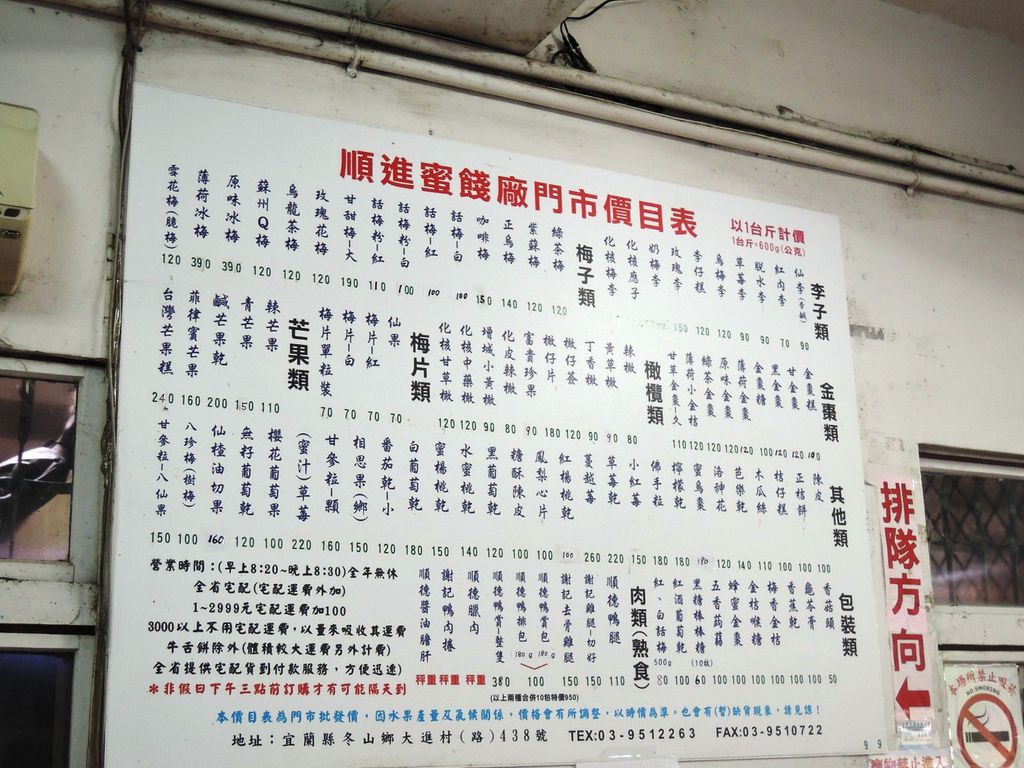 順進蜜餞廠門市價目表
以1台斤計價
1台斤=600g(公克)
李子類
仙李(李鹹)
紅肉李
脫水李
草莓李
烏梅李
李仔糕
玫瑰李
奶梅李
化核應子
化核梅李
90 70 90 90 120 120 150
梅子類
綠茶梅
紫蘇梅
正烏梅
咖啡梅
話梅-白
話梅-紅
話梅粉-白
話梅粉-紅
甘甜梅-大
玫瑰花梅
烏龍茶梅
蘇州Q梅
原味冰梅
薄荷冰梅
雪花梅(脆梅)
120 390 390 120 120 120 190 110 100 100 100 150 140 120 120
金棗類
金棗糕
甘金棗
黑金棗
金棗糖
薄荷金棗
原味金棗
綠茶金棗
薄荷小金桔
甘草金棗-久
110 120 120 120 120 100 120 120 100
橄欖類
辣橄
黃草橄
丁香橄
橄仔簽
橄仔片
富貴珍果
化皮辣橄
增城小黃橄
化核中藥橄
化核甘草橄
120 120 90 80 90 180 120 90 90 80
梅片類
仙果
梅片-紅
梅片-白
梅片單粒裝
70 70 70 70
芒果類
辣芒果
青芒果
鹹芒果乾
菲律賓芒果
台灣芒果糕
240 160 200 150 110
其他類
陳皮
正桔餅
桔仔糕
木瓜絲
芭樂乾
洛神花
蜜烏棗
檸檬乾
佛手粒
小紅莓
草莓
蔓越莓
紅楊桃乾
鳳梨心片
糖酥陳皮
黑葡萄乾
水蜜桃乾
蜜楊桃乾
白葡萄乾
番茄乾-小
相思果(鄉)
甘參粒-顆
(蜜汁)草莓
櫻花葡萄果
無籽葡萄乾
仙楂油切果
八珍梅(樹梅)
甘參粒-八仙果
150 100 160 120 100 220 160 150 120 180 150 140 120 100 100 100 260 220 150 180 180 180 120 140 110 100 100 100
包裝類
香菇頭
龜苓膏
香蕉乾
梅香金桔
金桔喉糖
蜂蜜金棗
五香蒟蒻
黑糖棒棒糖(10枝)
紅酒葡萄乾
紅、白話梅500g
80 100 60 100 100 100 100 100 100 50
肉類(熟食)
順德鴨腿
謝記雞腿-切好
謝記去骨雞腿
順德鴨賞包180g
順德鴨排包180g
順德鴨賞-整隻
順德臘肉
謝記鴨肉捲
順德醬油膽肝
秤重 秤重 秤重 380 100 150 150 110
(以上兩種合併10包特價950)
營業時間:(早上8:20~晚上8:30)全年無休
全省宅配(宅配運費外加)
1~2999元宅配運費加100
3000以上不用宅配運費,以量來吸收其運費
牛舌餅除外(體積較大運費另外計費)
全省提供宅配貨到付款服務,方便迅速)
*非假日下午三點前訂購才有可能隔天到
本價目表為門市批發價,因水果產量及氣候關係,價格會有所調整,以時價為準。也會有(暫)缺貨現象,請見諒!
地址:宜蘭縣冬山鄉大進村(路)438號 TEX:03-9512263 FAX:03-9510722
99
排隊方向
本場所禁止吸菸
NO SMOKING
寵物禁止進入